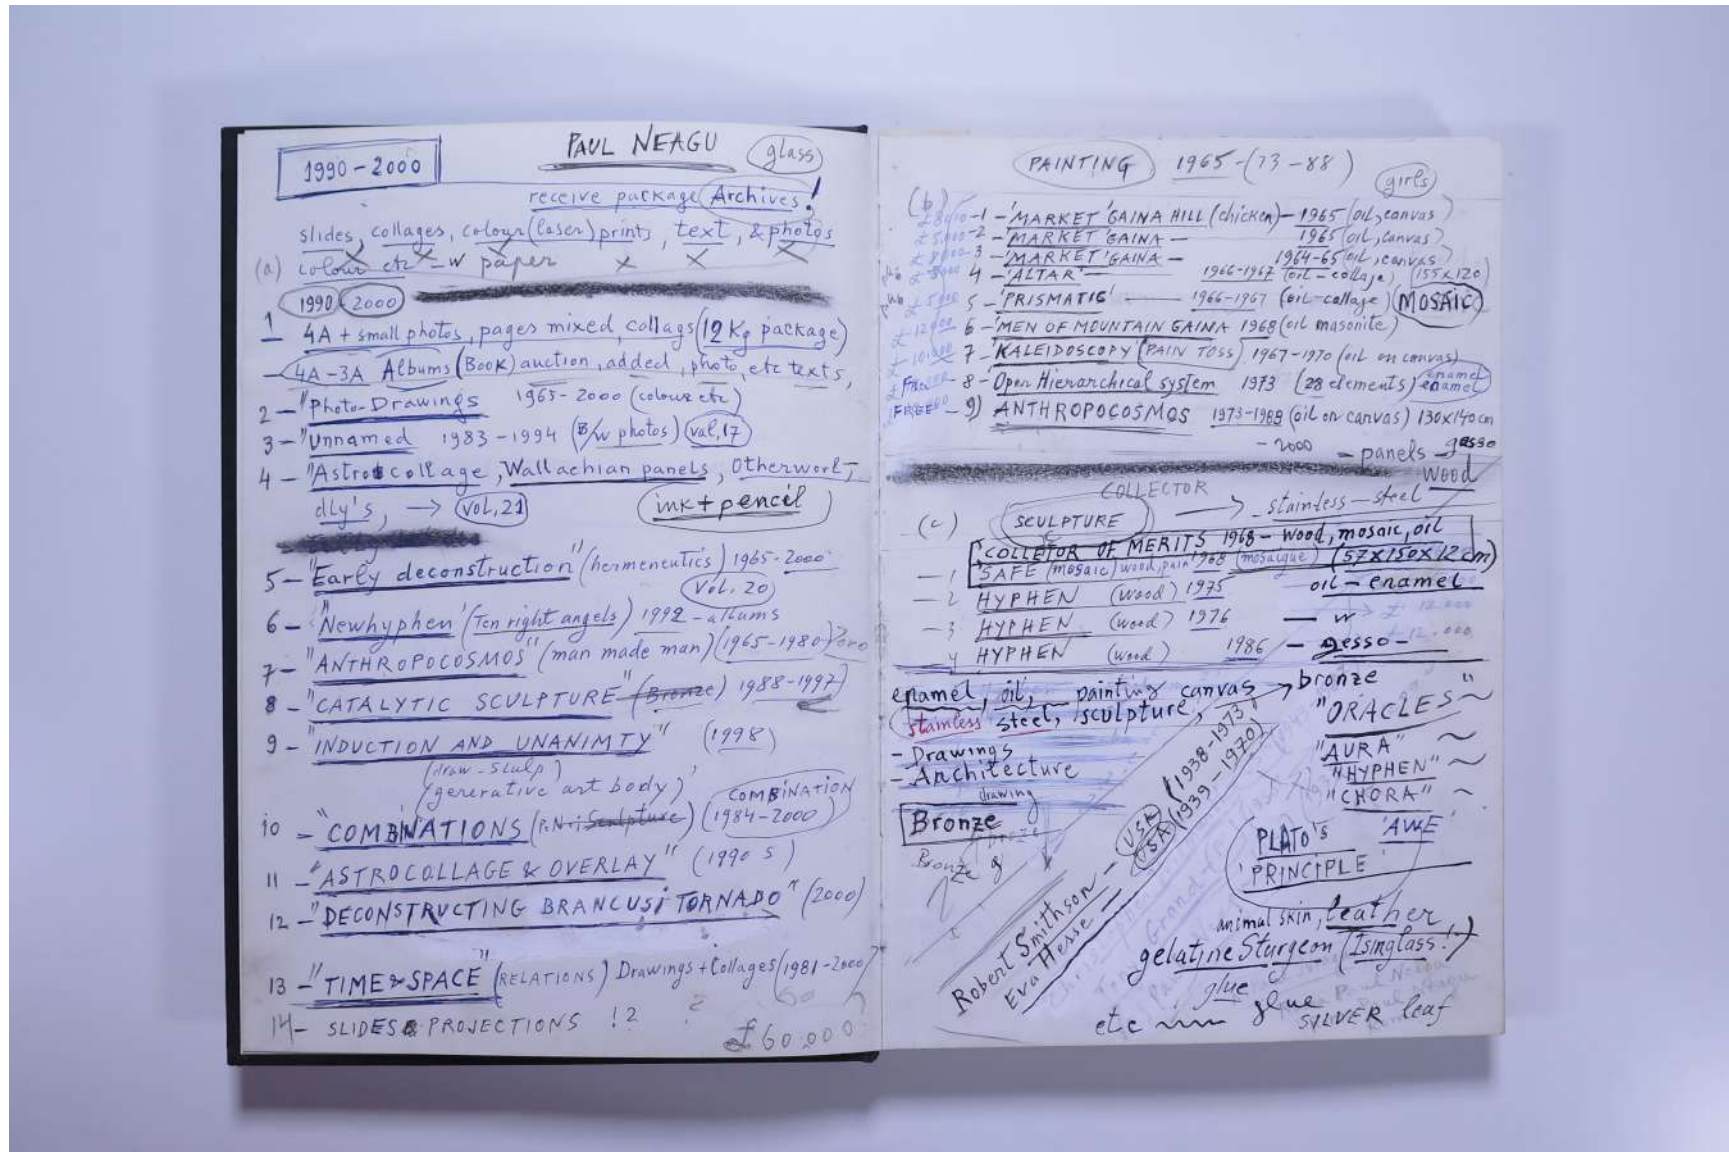 PAUL NEAGU
glass
1990-2000
receive package Archives!
slides, collages, colour (laser) prints, text, & photos
(a) colour etc - w paper
1990 2000
1 4A + small photos, pages mixed, collags (12 Kg package)
- 4A-3A Albums (Book) auction, added, photo, etc texts,
2 - "Photo-Drawings 1965-2000 (colour etc)
3 - "Unnamed 1983-1994 (B/w photos) (val, 17)
4 - "Astrocollage, Wallachian panels, Otherworl-
dly's, → (vol, 21) ink + pencil
5 - "Early deconstruction" (hermeneutics) 1965-2000
(Vol. 20)
6 - "Newhyphen' (Ten right angels) 1992 - albums
7 - "ANTHROPOCOSMOS" (man made man) (1965-1980)
8 - "CATALYTIC SCULPTURE" (Bronze) 1988-1997)
9 - "INDUCTION AND UNANIMTY" (1998)
(draw-sculp)
(generative art body) COMBINATION
10 - "COMBINATIONS (P.N. Sculpture) (1984-2000)
11 - "ASTROCOLLAGE & OVERLAY" (1990 s)
12 - "DECONSTRUCTING BRANCUSi TORNADO" (2000)
13 - "TIME & SPACE" (RELATIONS) Drawings + Collages (1981-2000)
14 - SLIDES & PROJECTIONS !?
£60.000
PAINTING 1965-(73-88)
girls
(b)
£8000 -1 - 'MARKET' GAINA HILL (chicken) - 1965 (oil, canvas)
£5.000 -2 - 'MARKET' GAINA - 1965 (oil, canvas)
£8000 3 - 'MARKET' GAINA - 1964-65 (oil, canvas)
4 - 'ALTAR' - 1966-1967 (oil-collaje) (155x120)
5 - 'PRISMATIC' - 1966-1967 (oil-collage) (MOSAIC)
6 - 'MEN OF MOUNTAIN GAINA 1968 (oil masonite)
7 - KALEIDOSCOPY (PAIN TOSS) 1967-1970 (oil on canvas)
8 - Open Hierarchical system 1973 (28 elements) enamel enamel
FREE - 9) ANTHROPOCOSMOS 1973-1988 (oil on canvas) 130x140 cm
- 2000 - panels - gesso
wood
COLLECTOR
(c) SCULPTURE → stainless-steel
COLLETOR OF MERITS 1968 - wood, mosaic, oil
- 1 'SAFE (mosaic) wood, pain 1968 (mosaique) (57x150x12 cm)
- 2 HYPHEN (wood) 1975 oil - enamel
- 3 HYPHEN (wood) 1976 - w £ 12.000
4 HYPHEN (wood) 1986 - gesso - 12.000
enamel, oil, - painting canvas → bronze
stainless steel, sculpture,
- Drawings
- Architecture
drawing
Bronze
Bronze
"ORACLES" ~
"AURA" ~
"HYPHEN" ~
"CHORA" ~
'AWE'
PLATO's
'PRINCIPLE
Robert Smithson - USA (1938-1973)
Eva Hesse = USA (1939-1970)
animal skin, leather
gelatine Sturgeon (Isinglass!)
glue
etc glue
SILVER leaf